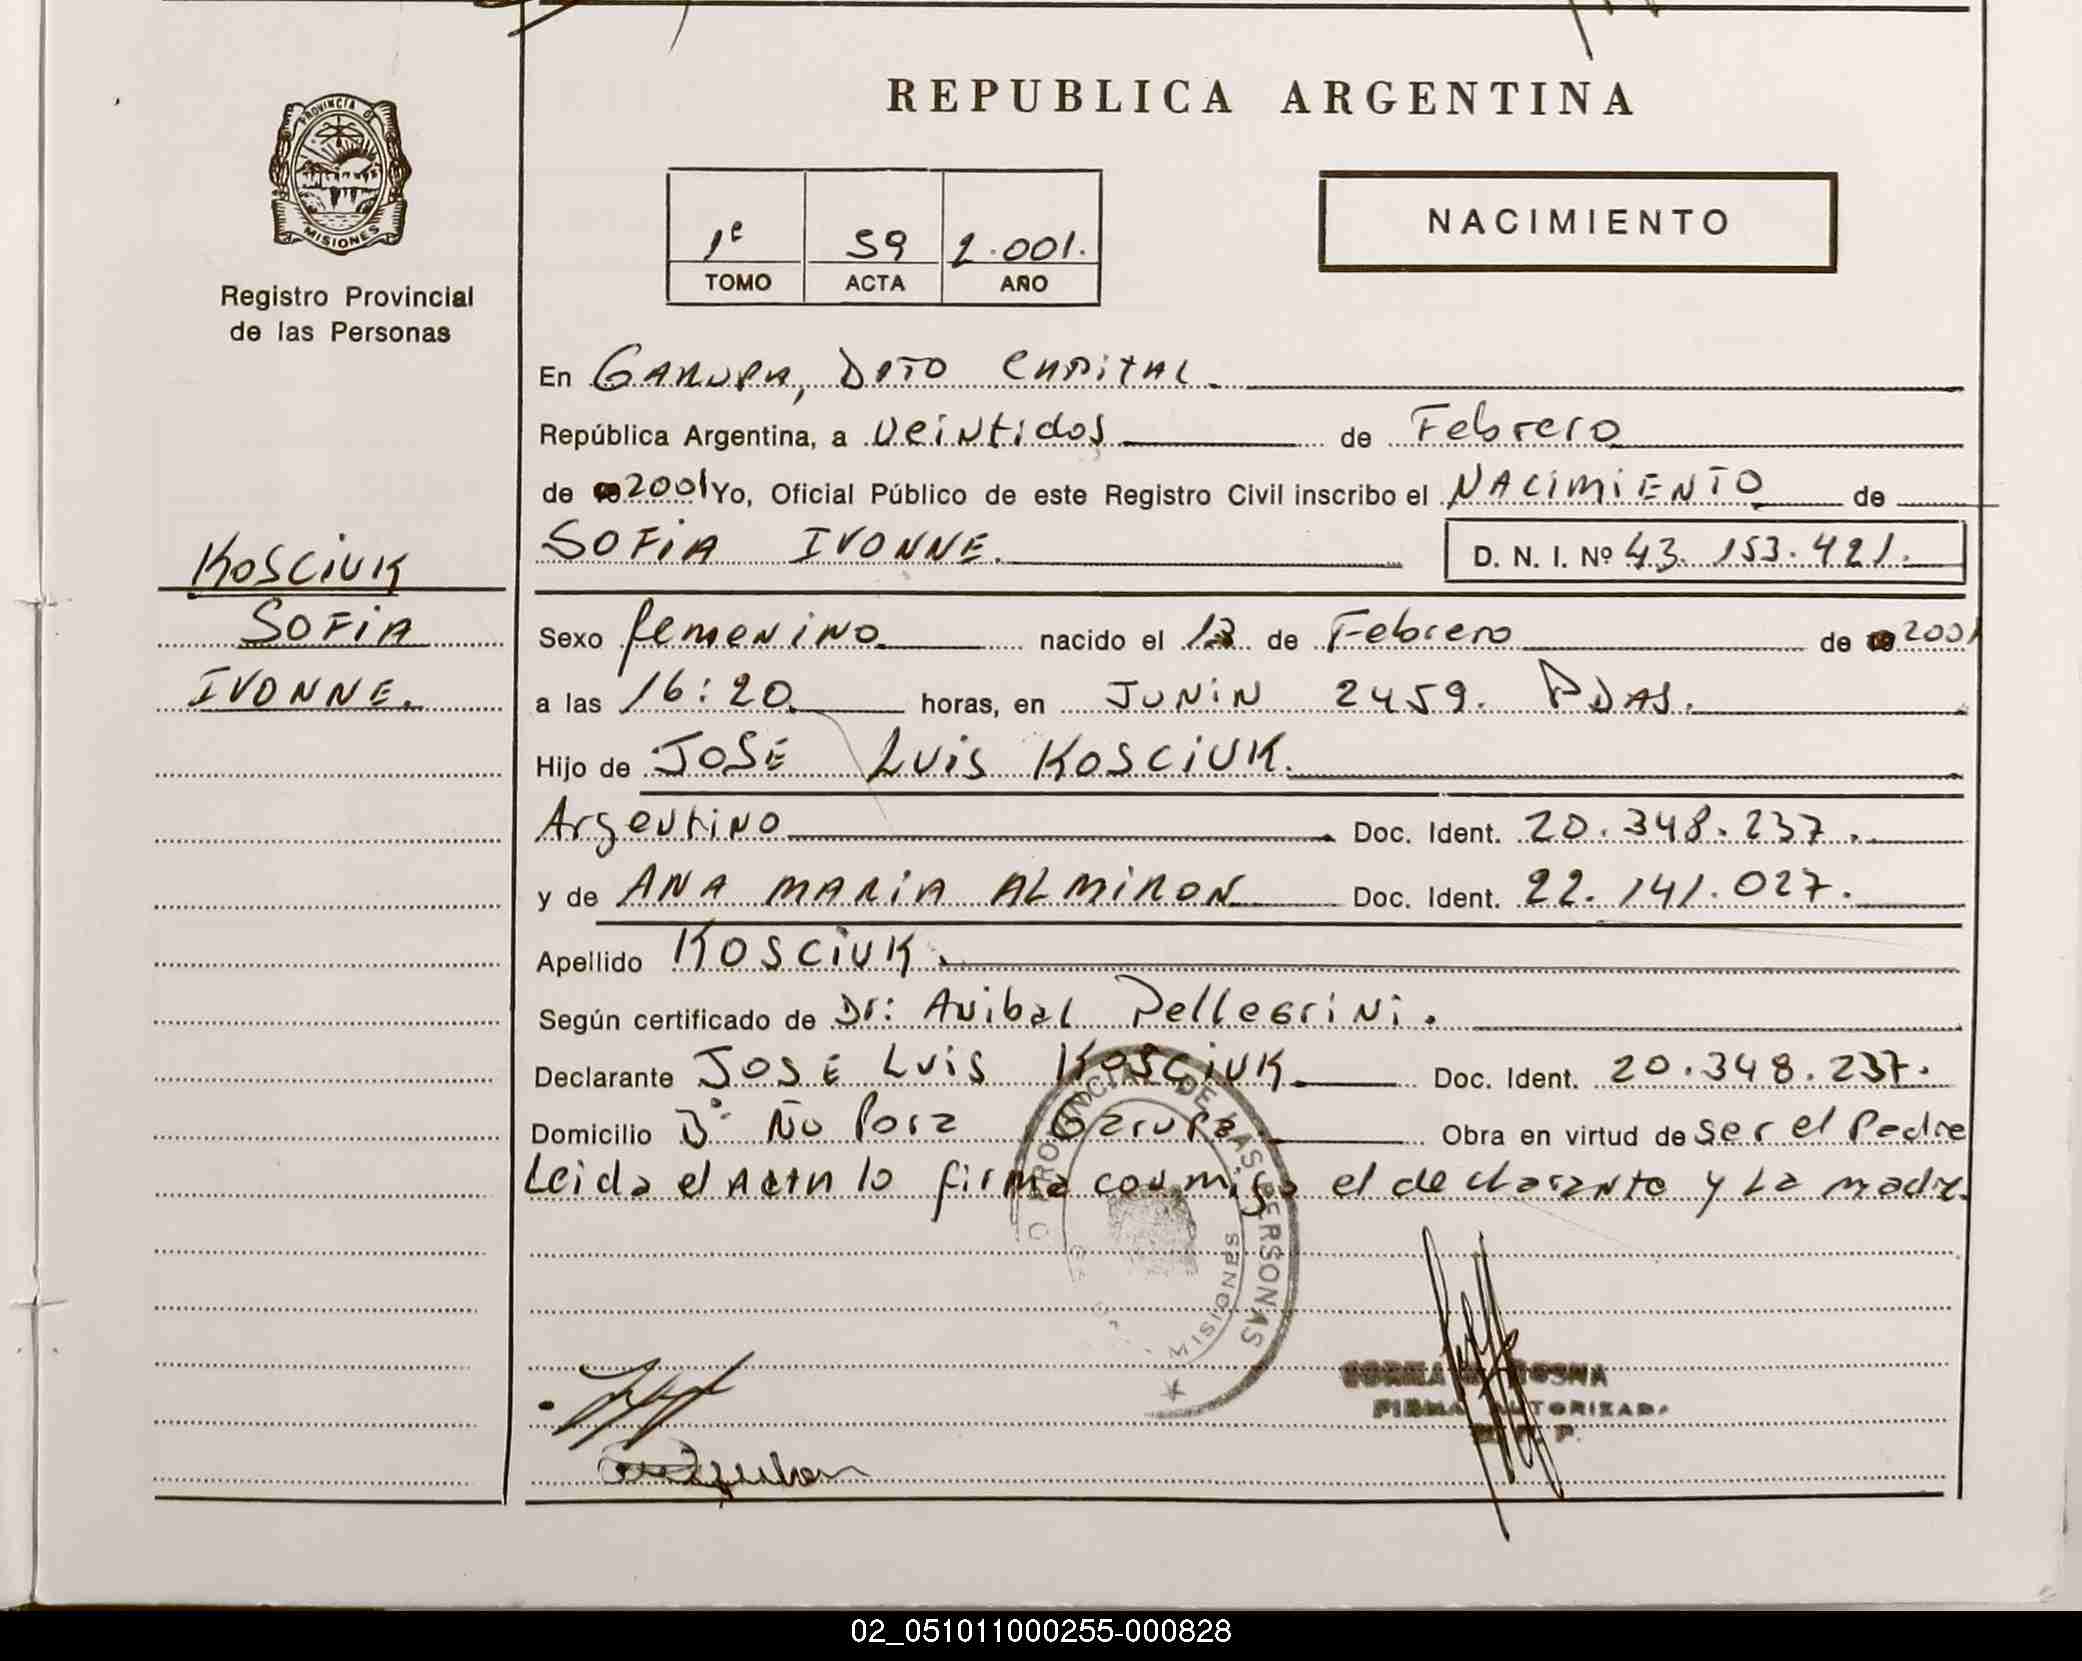 PROVINCIA DE
MISIONES
Registro Provincial
de las Personas
REPUBLICA ARGENTINA
1º 59 2.001.
TOMO ACTA AÑO
NACIMIENTO
En GARUPA, DPTO CAPITAL.
República Argentina, a veintidos de Febrero
de 2001 Yo, Oficial Público de este Registro Civil inscribo el NACIMIENTO de
SOFIA IVONNE. D. N. I. Nº 43.153.421.
KOSCIUK
SOFIA
IVONNE.
Sexo femenino nacido el de Febrero de 2001
a las 16:20 horas, en JUNIN 2459. PDAS.
Hijo de JOSE LUIS KOSCIUK.
Argentino Doc. Ident. 20.348.237.
y de ANA MARIA ALMIRON Doc. Ident. 22.141.027.
Apellido KOSCIUK.
Según certificado de Dr: Anibal Pellegrini.
Declarante JOSE LUIS KOSCIUK. Doc. Ident. 20.348.237.
Domicilio Bº Ñu Pora Garupa Obra en virtud de ser el Padre
Leida el ACTA lo firma conmigo el declarante y La madre.
PROVINCIAL DE LAS PERSONAS
MISIONES
FIRMA AUTORIZADA
02_051011000255-000828